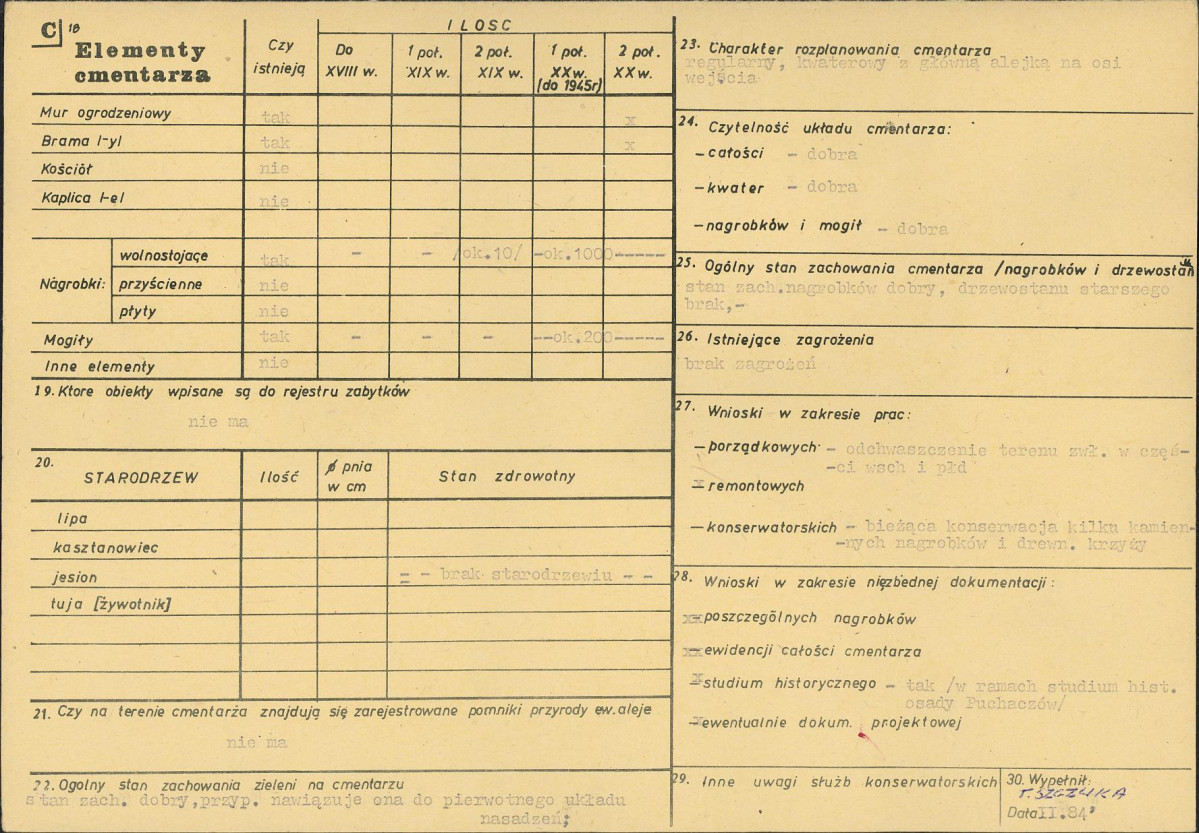 C 18
Elementy
cmentarza
Czy
istnieją
ILOSC
Do
XVIII w.
1 poł.
XIX w.
2 poł.
XIX w.
1 poł.
XX w.
(do 1945r)
2 poł.
XX w.
Mur ogrodzeniowy tak x
Brama 1-yl tak x
Kościół nie
Kaplica 1-el nie
Nagrobki:
wolnostojące tak - - /ok.10/ -ok.1000-----
przyścienne nie
płyty nie
Mogiły tak - - - --ok.200-----
Inne elementy nie
19. Ktore obiekty wpisane są do rejestru zabytków
nie ma
20.
STARODRZEW
Ilość
φ pnia
w cm
Stan zdrowotny
lipa
kasztanowiec
jesion - - brak starodrzewiu - -
tuja [żywotnik]
21. Czy na terenie cmentarza znajdują się zarejestrowane pomniki przyrody ew. aleje
nie ma
22. Ogolny stan zachowania zieleni na cmentarzu
stan zach. dobry, przyp. nawiązuje ona do pierwotnego układu
nasadzeń;
23. Charakter rozplanowania cmentarza
regularny, kwaterowy z główną alejką na osi
wejścia
24. Czytelność układu cmentarza:
- całości - dobra
- kwater - dobra
- nagrobków i mogił - dobra
25. Ogólny stan zachowania cmentarza /nagrobków i drzewostan
stan zach.nagrobków dobry, drzewostanu starszego
brak,-
26. Istniejące zagrożenia
brak zagrożeń
27. Wnioski w zakresie prac:
- porządkowych - odchwaszczenie terenu zwł. w częś-
-ci wsch i płd
x remontowych
- konserwatorskich - bieżąca konserwacja kilku kamien-
-nych nagrobków i drewn. krzyży
28. Wnioski w zakresie niezbednej dokumentacji:
xx poszczególnych nagrobków
xx ewidencji całości cmentarza
x studium historycznego - tak /w ramach studium hist.
osady Puchaczów/
x ewentualnie dokum. projektowej
29. Inne uwagi służb konserwatorskich
30. Wypełnił:
Data II.84'